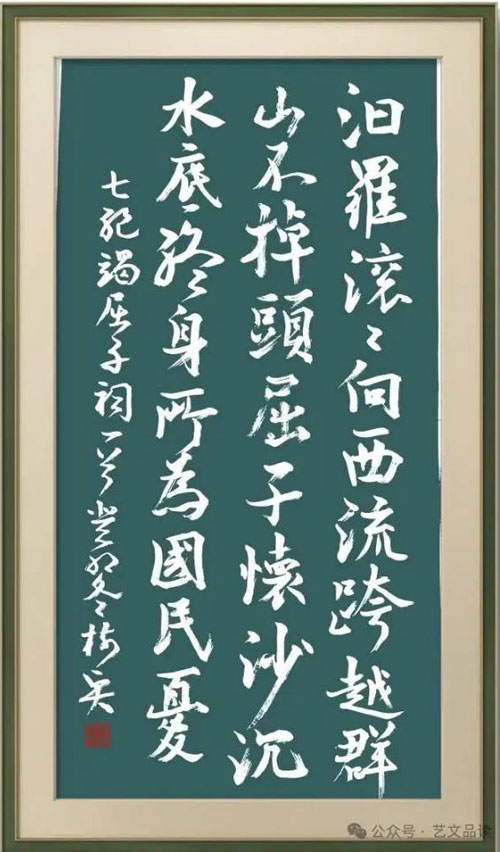 汨羅滚〻向西流跨越群
山不掉頭屈子懷沙沉
水底終身所為國民憂
七绝謁屈子祠一首癸卯冬
公众号·艺文品谈